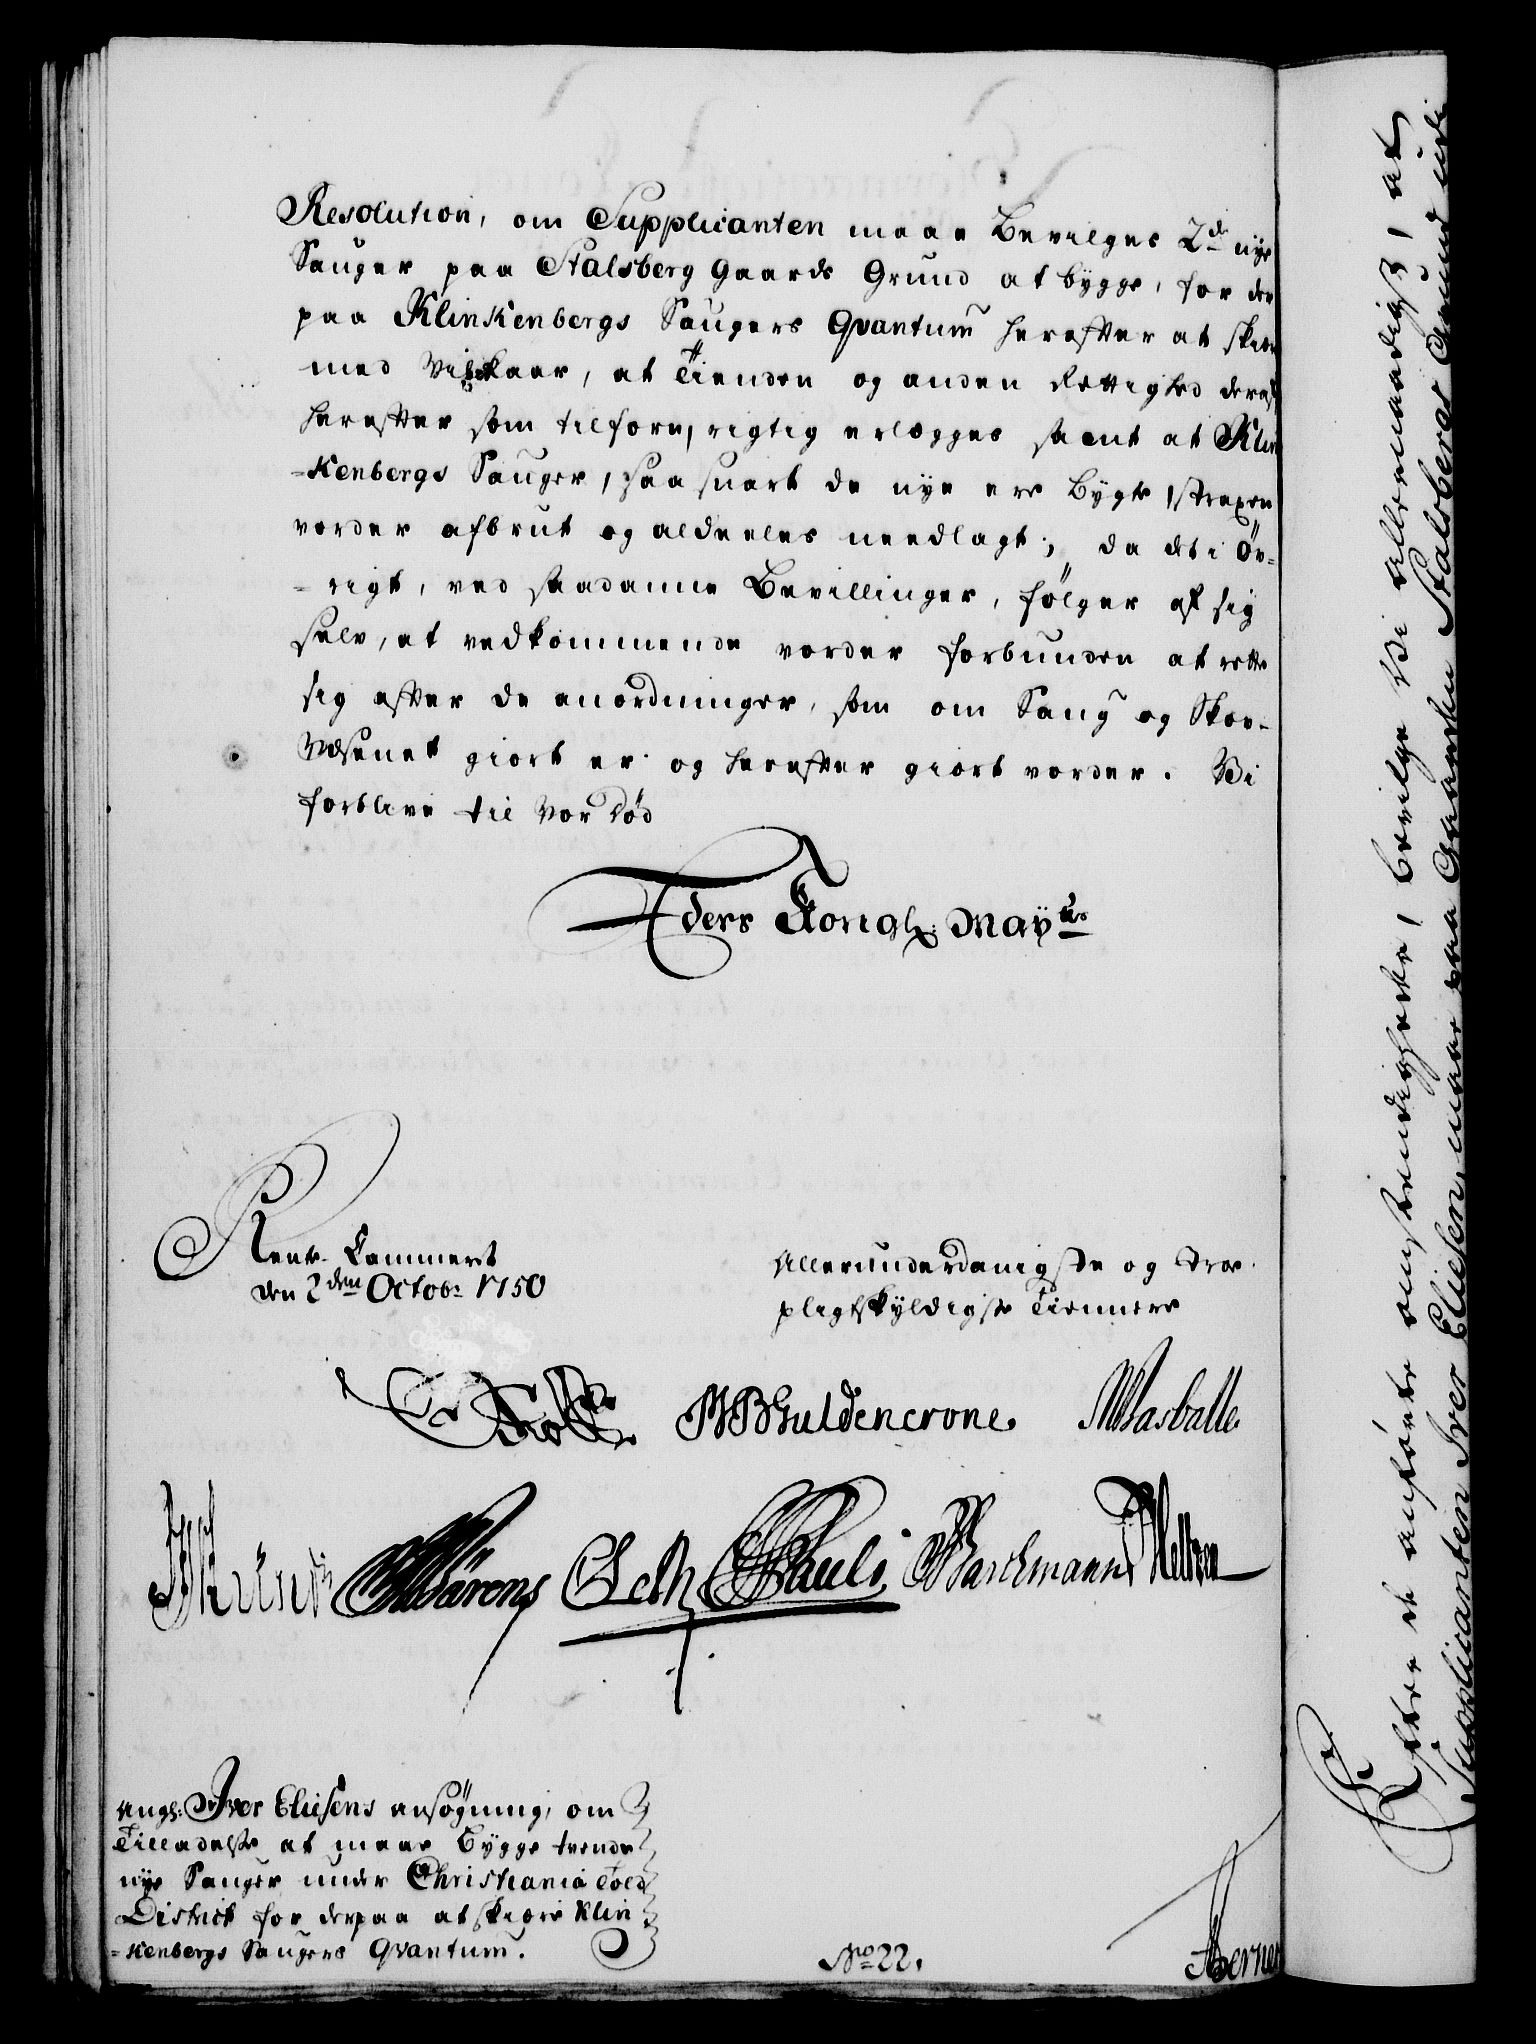 Resolution, om Supplicanten maae Bevilges 2de nye
Sauger paa Stalsberg Gaards Grund at bygge, for der
paa Klinkenbergs Saugers Qvantum herefter at skiere
med Vilkaar, at Tienden og anden Rettighed deraf
herefter som tilforn, rigtig erlægges samt at Klin
=kenbergs Sauger, saa snart de nye ere bygte, straxen
vorder afbrut og aldeeles needlagt; da det i Øv=
=rigt, ved saadanne Bevillinger, følger af sig
selv, at vedkommende vorder forbunden at rette
sig efter de anordninger, som om Saug og Skov-
Væsenet giort er og herefter giort vorder. Vi
forblive til vor Død
Eders Kongl. Mayts
Rente Cammeret
den 2den Octobr 1750
Allerunderdanigste og Troe
pligtskyldigste Tiennere
MBGuldencrone. Wasballe
Wärens Seth Pauli Barchmann
Angl: Iver Eliesens ansøgning, om
Tilladelse at maae bygge tvende
nye Sauger under Christiania Told
District for derpaa at skiære Klin
=kenbergs Saugers Qvantum.
No 22.
Efter de anførte omstendigheder, bevilge Vi allernaadigst, at
Supplicanten Iver Eliesen, maae paa Gaarden Stalsbergs Grund udi